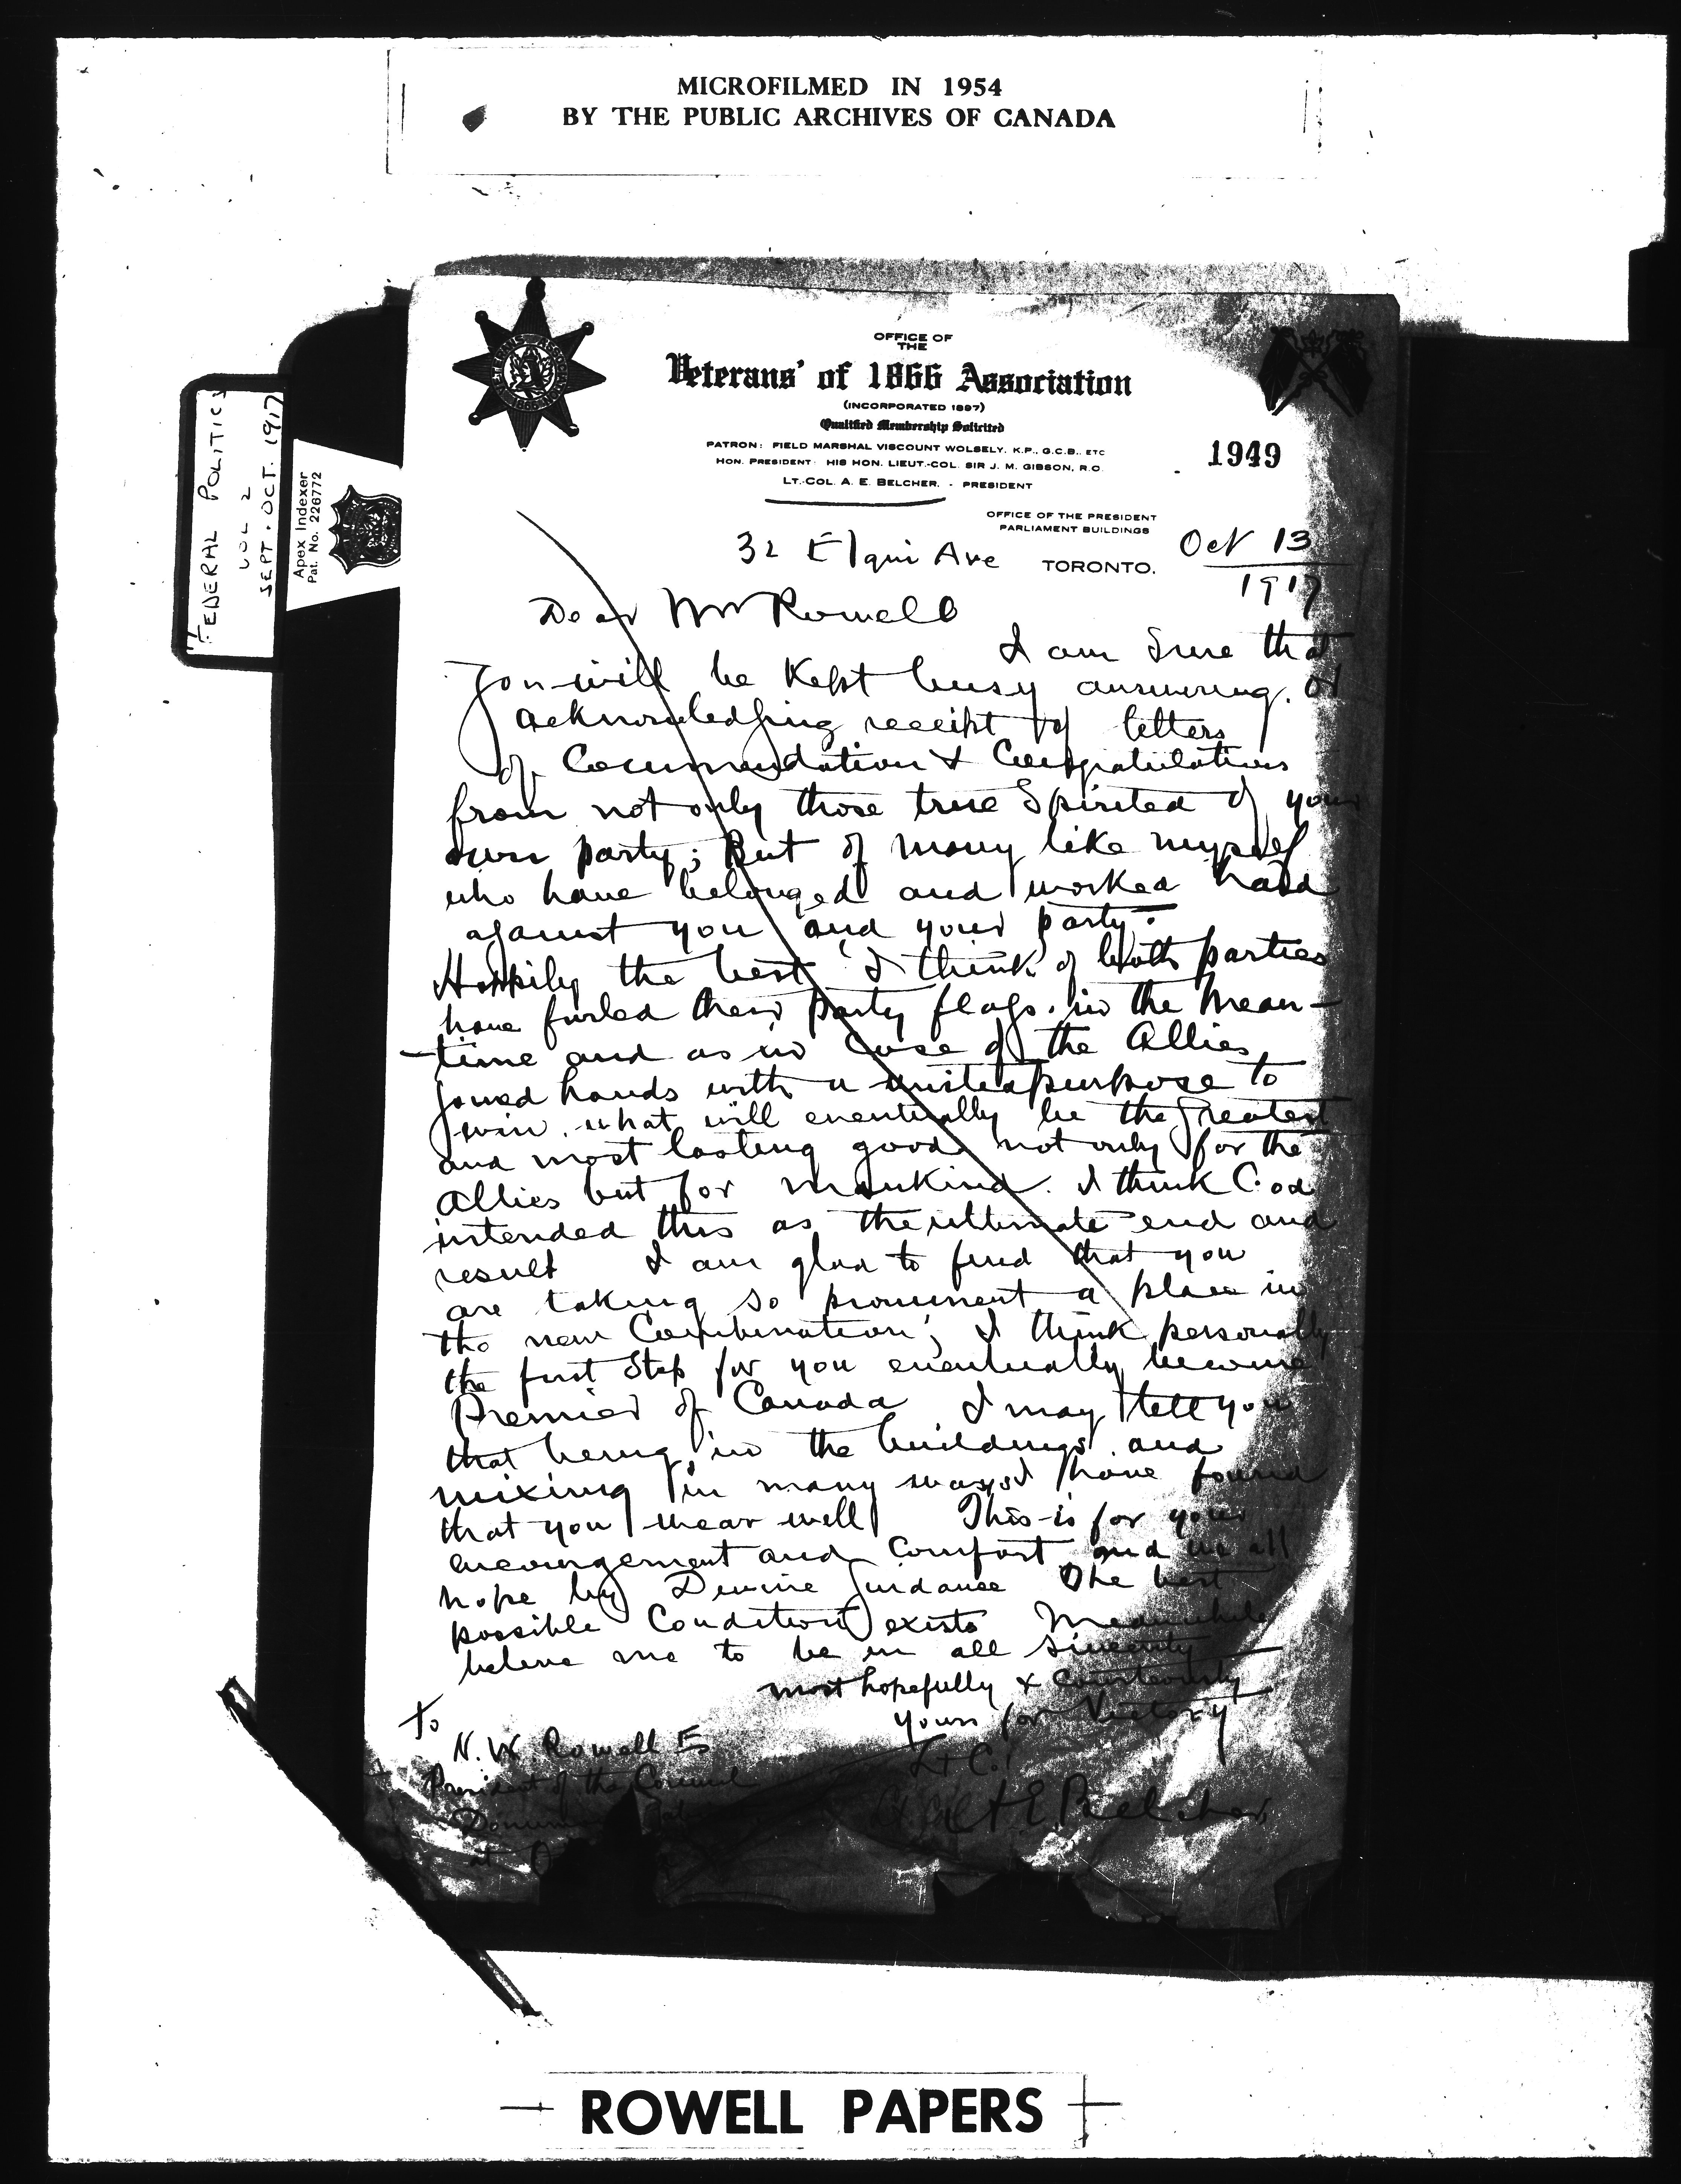 MICROFILMED IN 1954
BY THE PUBLIC ARCHIVES OF CANADA
FEDERAL POLITICS
VOL 2
SEPT. OCT. 1917
Apex Indexer
Pat. No. 226772
OFFICE OF
THE
Veterans' of 1866 Association
(INCORPORATED 1897)
Qualified Membership Solicited
PATRON: FIELD MARSHAL VISCOUNT WOLSELY, K.P., G.C.B., ETC
HON. PRESIDENT: HIS HON. LIEUT.-COL. SIR J. M. GIBSON, R.O.
LT.-COL. A. E. BELCHER, - PRESIDENT
1949
OFFICE OF THE PRESIDENT
PARLIAMENT BUILDINGS
32 Elgin Ave TORONTO. Oct 13
1917
Dear Mr Rowell
I am Sure that
you will be Kept busy answering. or
acknowledging receipt of letters
of Commendation & Congratulations
from not only those true Spirited of your
own party; But of many like myself
who have belonged and worked hard
against you and your party.
Happily the best I think of both parties
have furled their party flags. in the Mean-
-time and as in Case of the Allies
joined hands with a united purpose to
win. what will eventually be the greatest
and most lasting good not only for the
Allies but for mankind. I think God
intended this as the ultimate end and
result I am glad to find that you
are taking so prominent a place in
the new Combination; I think personally
the first Step for you eventually become
Premier of Canada I may tell you
that being in the buildings. and
mixing in many ways I have found
that you wear well This is for your
encouragement and Comfort and we all
hope by Devine Guidance The best
possible Condition exists Meanwhile
believe me to be in all Sincerity
most hopefully & Courteously
yours for Victory
Lt Col
A E Belcher
To
N. W. Rowell Es
President of the Council
at
ROWELL PAPERS